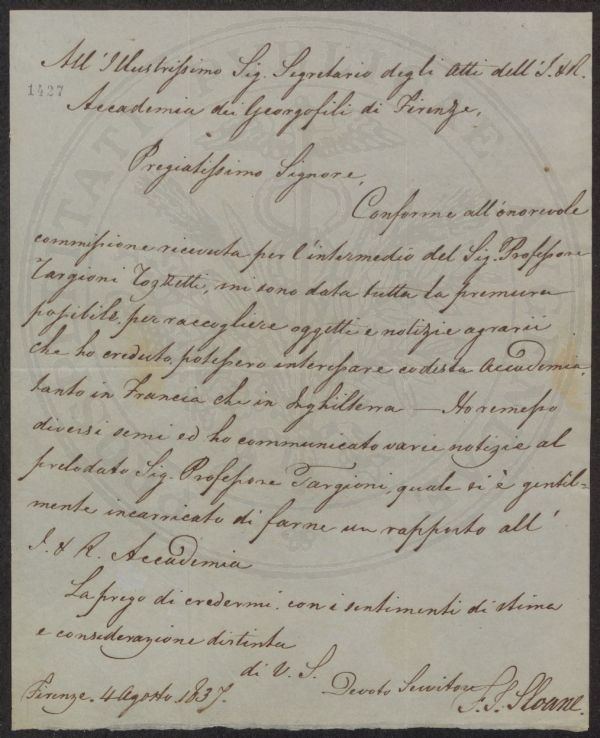 All'Illustrissimo Sig. Segretario degli Atti dell'I. & R.
1427
Accademia dei Georgofili di Firenze.
Pregiatissimo Signore,
Conforme all'onorevole
commissione ricevuta per l'intermedio del Sig. Professore
Targioni Tozzetti, mi sono data tutta la premura
possibile, per raccogliere oggetti e notizie agrarii
che ho creduto, potessero interessare codesta Accademia,
tanto in Francia che in Inghilterra — Ho remesso
diversi semi ed ho communicato varie notizie al
prelodato Sig. Professore Targioni, quale si è gentil=
mente incarricato di farne un rapporto all'
I. & R. Accademia
La prego di credermi con i sentimenti di stima
e considerazione distinta
di V. S.
Devoto Servitore
Firenze. 4 Agosto 1837.
F. J. Sloane.